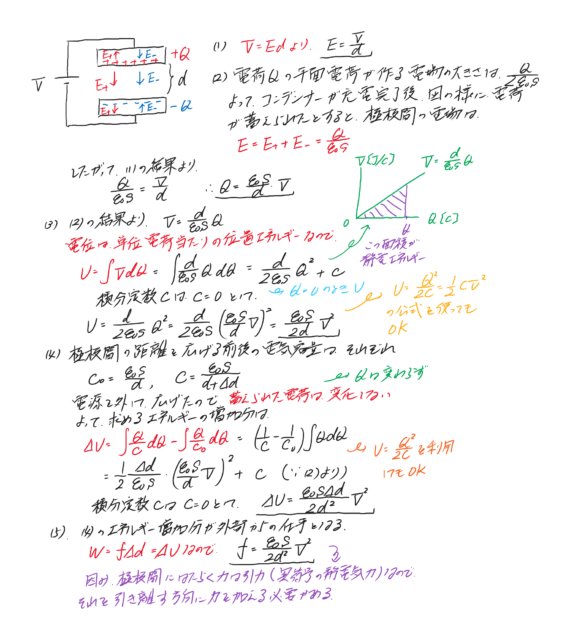 E+ E- +Q
V E+ E- d
E+ E- -Q
(1) V=Edより、 E=V/d
(2) 電荷Qの平面電荷が作る電場の大きさは、Q/2ε₀S
よって、コンデンサーが充電完了後、図の様に、電荷
が蓄えられたとすると、極板間の電場は、
E=E+ + E- = Q/ε₀S
したがって、(1)の結果より、
Q/ε₀S = V/d ∴ Q = ε₀S/d V
V[J/C] V=d/ε₀S Q
0 Q Q[C]
この面積が
静電エネルギー
(3) (2)の結果より、 V=d/ε₀S Q
電位は、単位電荷当たりの位置エネルギーなので、
U=∫VdQ = ∫d/ε₀S Q dQ = d/2ε₀S Q² + C
積分定数Cは C=0 として、 Q=0のときU
U = d/2ε₀S Q² = d/2ε₀S (ε₀S/d V)² = ε₀S/2d V²
U=Q²/2C=1/2 CV²
の公式を使っても
OK
(4) 極板間の距離を広げる前後の電気容量は、それぞれ
C₀=ε₀S/d, C=ε₀S/d+Δd
Qは変わらず
電源を外して、広げたので、蓄えられた電荷は、変化しない
よって、求めるエネルギーの増加分は、
ΔU=∫Q/C dQ-∫Q/C₀ dQ = (1/C-1/C₀)∫QdQ
= 1/2 Δd/ε₀S・(ε₀S/d V)² + C (∵(2)より)
U=Q²/2C を利用
してもOK
積分定数Cは C=0 として、 ΔU=ε₀SΔd/2d² V²
(5) (4)のエネルギー増加分が外部からの仕事となる。
W=fΔd=ΔUなので、 f=ε₀S/2d² V²
因み、極板間にはたらく力は引力(異符号の静電気力)なので、
それを引き離す方向に力を加える必要がある。